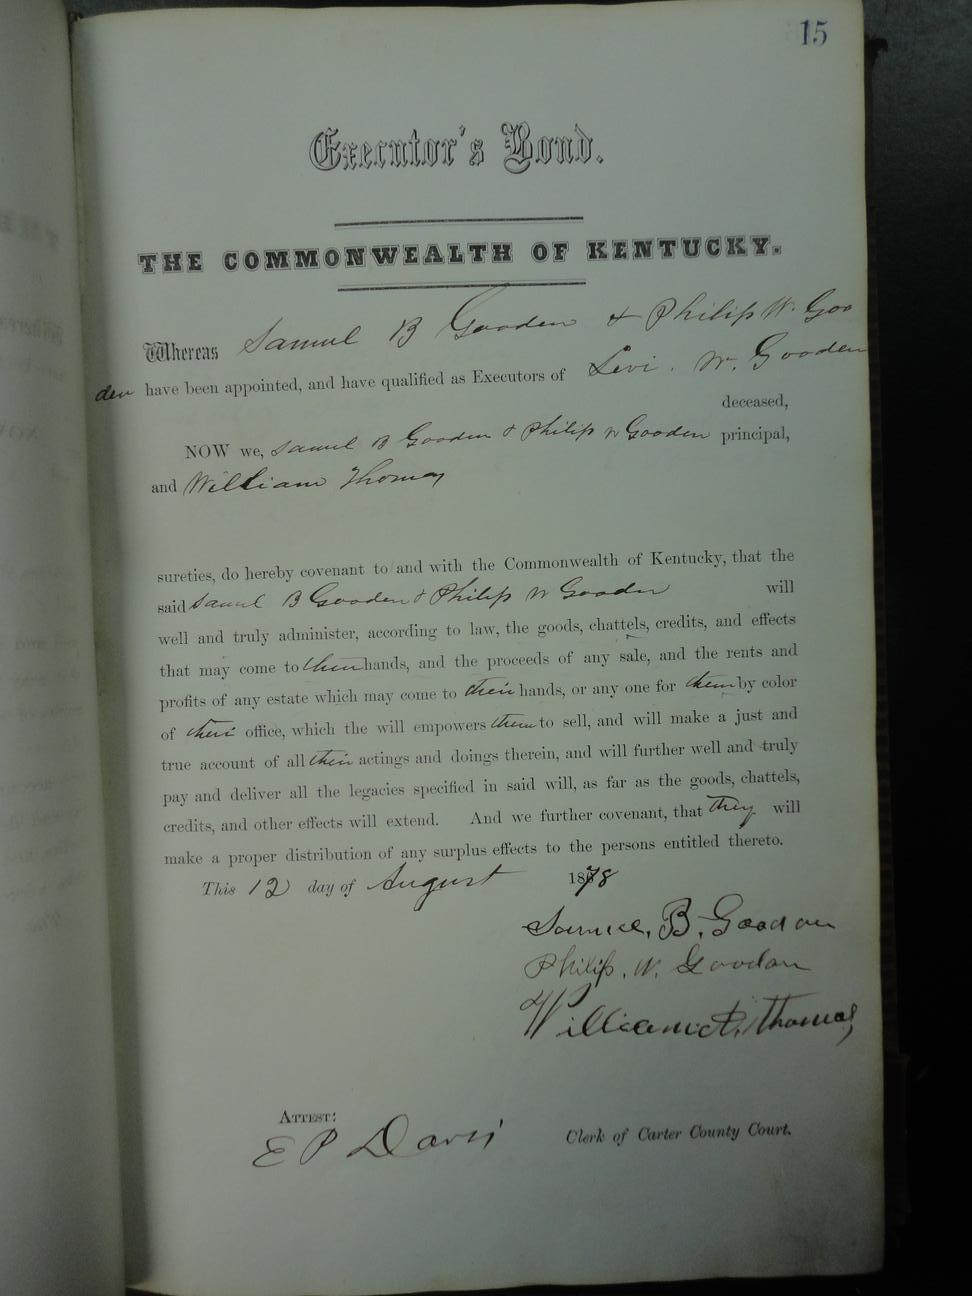 15
Executor's Bond.
THE COMMONWEALTH OF KENTUCKY.
Whereas Samuel B Gooden & Philip W. Goo
den have been appointed, and have qualified as Executors of Levi. W. Gooden
deceased,
NOW we, Samuel B Gooden & Philip W Gooden principal,
and William Thomas
sureties, do hereby covenant to and with the Commonwealth of Kentucky, that the
said Samuel B Gooden & Philip W Gooden will
well and truly administer, according to law, the goods, chattels, credits, and effects
that may come to their hands, and the proceeds of any sale, and the rents and
profits of any estate which may come to their hands, or any one for them by color
of their office, which the will empowers them to sell, and will make a just and
true account of all their actings and doings therein, and will further well and truly
pay and deliver all the legacies specified in said will, as far as the goods, chattels,
credits, and other effects will extend. And we further covenant, that they will
make a proper distribution of any surplus effects to the persons entitled thereto.
This 12 day of August 1878
Samuel. B. Goodan
Philip. W. Goodan
William Thomas
ATTEST:
E P Davis Clerk of Carter County Court.